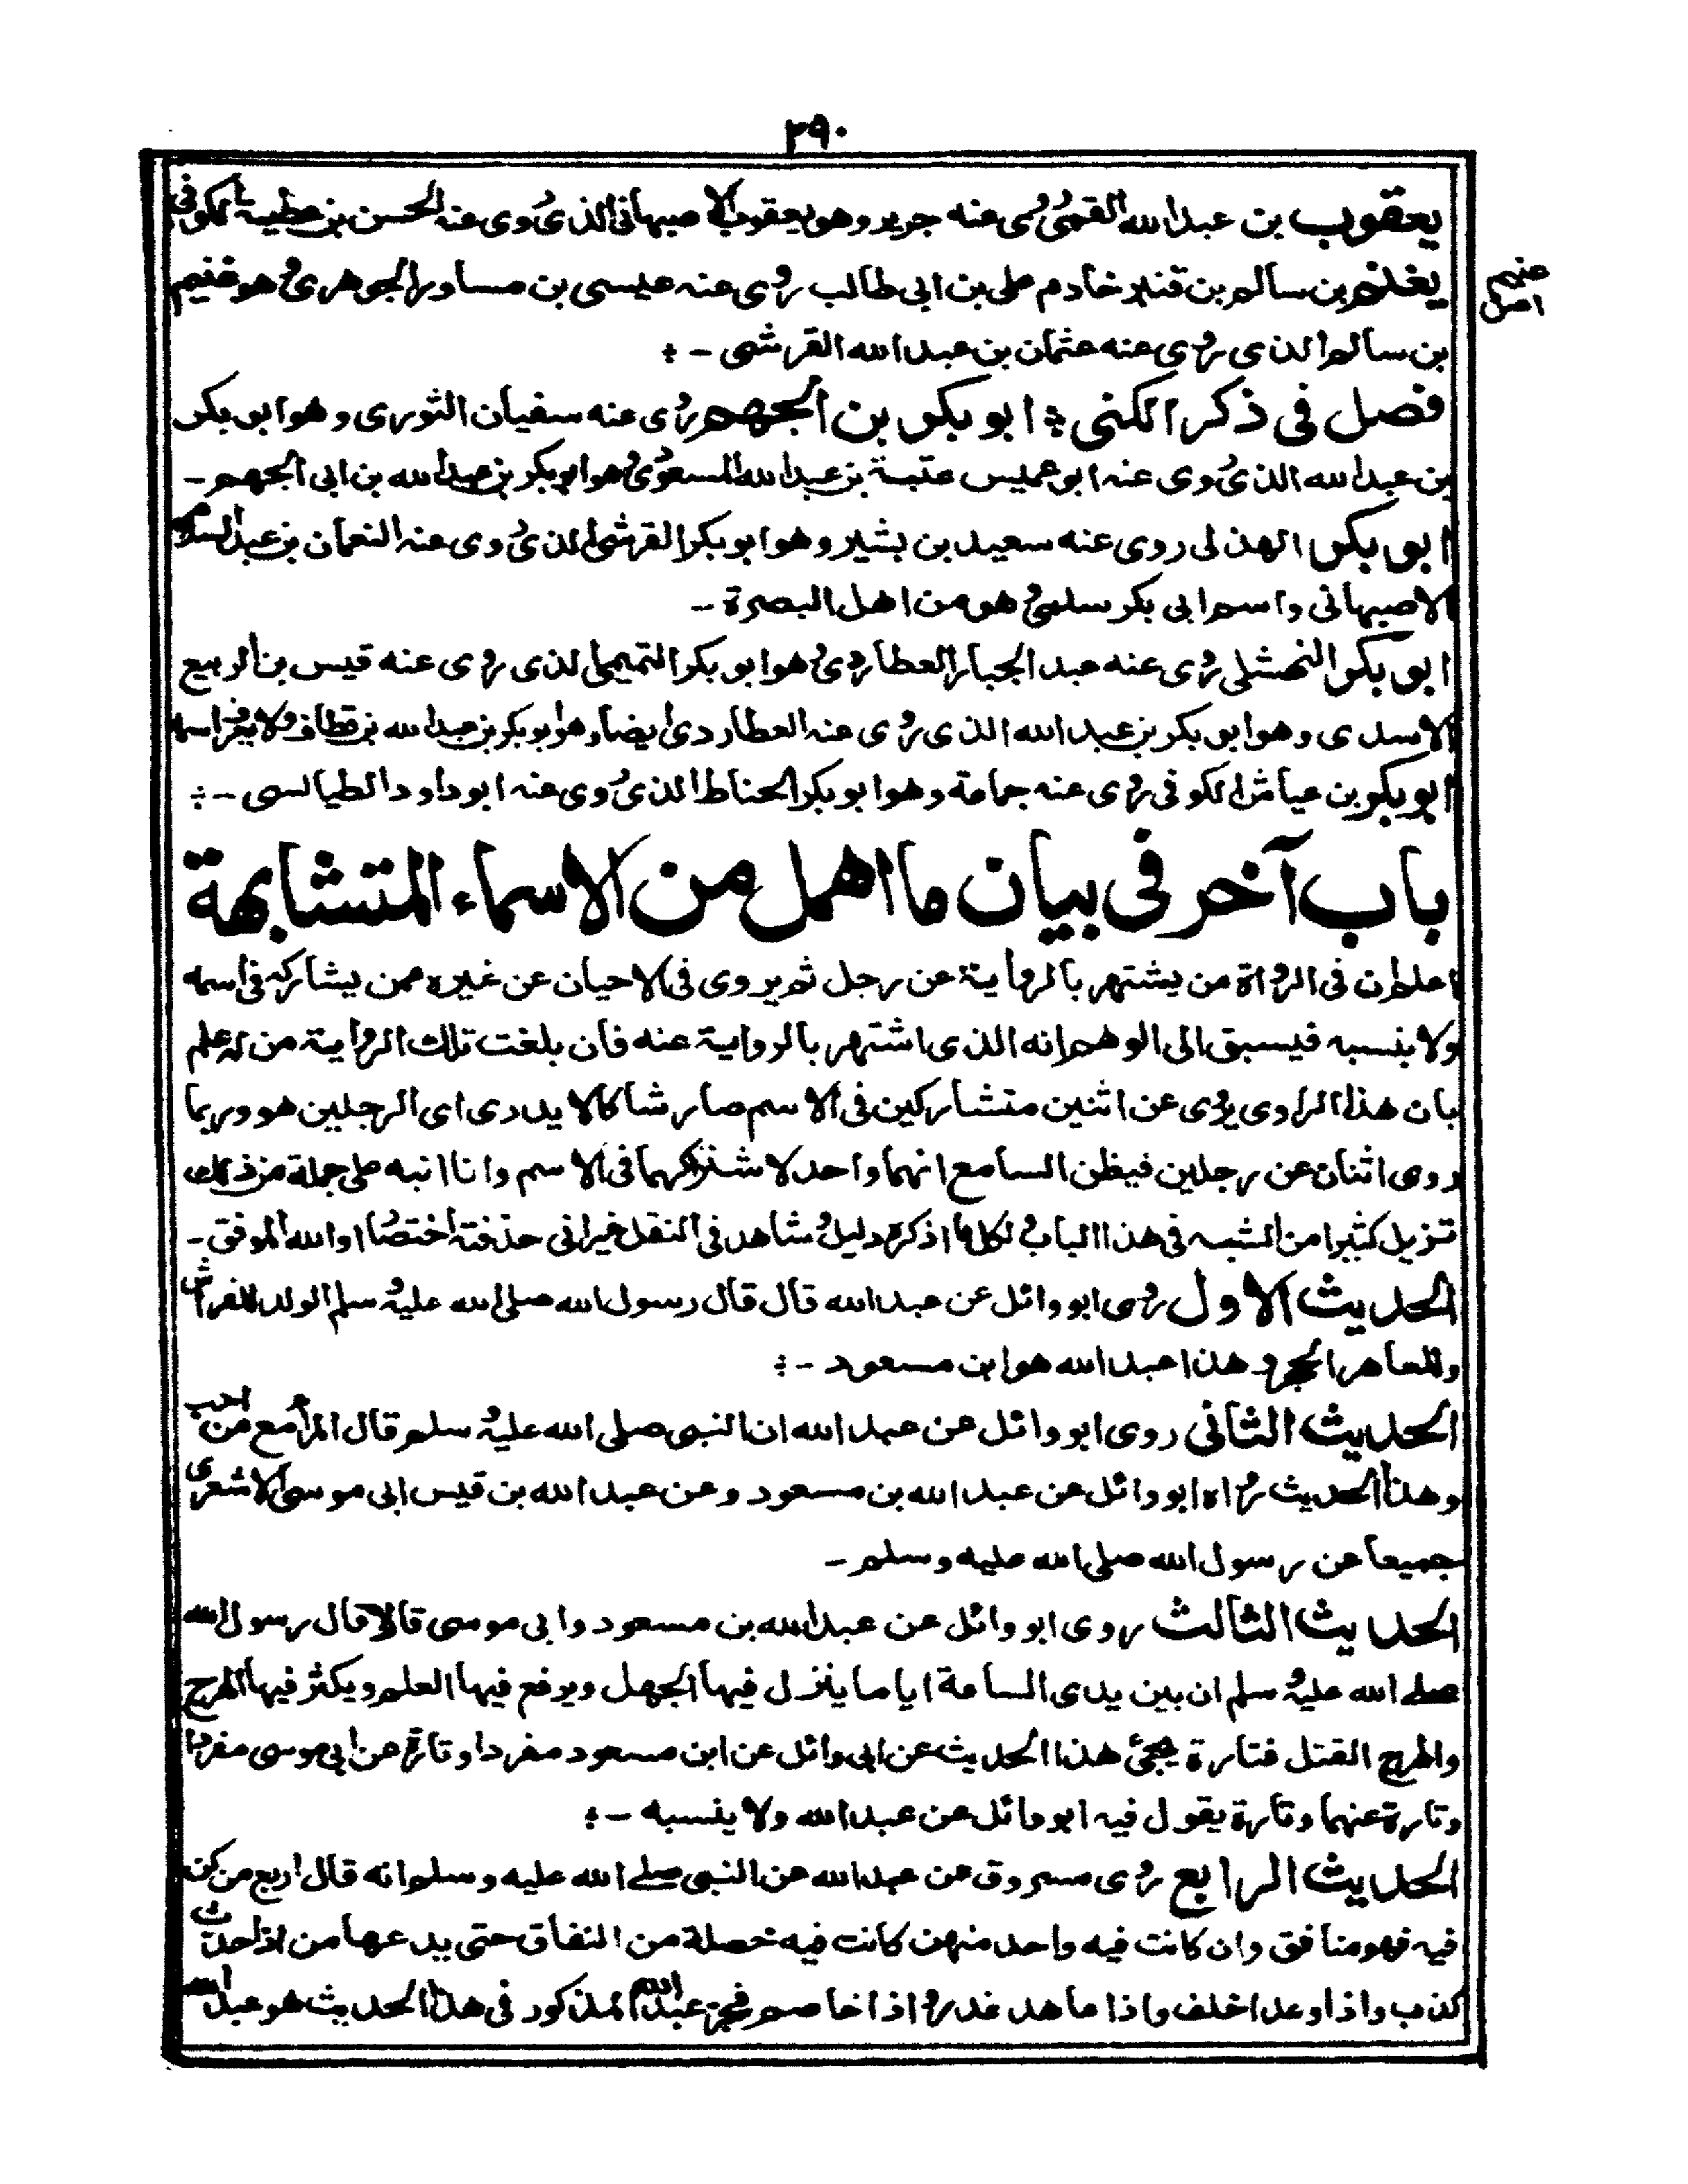 ٢٩٠
يعقوب بن عبدالله القمى روى عنه جرير وهو يعقوب الاصبهانى الذى روى عنه الحسن بن عطية الكوفى
يغنم بن سالم بن قنبر خادم على بن ابى طالب روى عنه عيسى بن مساور الجوهرى وهو غنيم
بن سالم الذى روى عنه عثمان بن عبدالله القرشى -
فصل فى ذكر الكنى ابو بكر بن الجهم روى عنه سفيان الثورى وهو ابو بكر
بن عبدالله الذى روى عنه ابو عميس عتبة بن عبدالله المسعودى وهو ابو بكر بن عبدالله بن ابى الجهم -
ابو بكر الهذلى روى عنه سعيد بن بشير وهو ابو بكر القرشى الذى روى عنه النعمان بن عبدالسلام
الاصبهانى واسم ابى بكر سلمى وهو من اهل البصرة -
ابو بكر النهشلى روى عنه عبد الجبار العطاردى وهو ابو بكر التميمى الذى روى عنه قيس بن الربيع
الاسدى وهو ابو بكر بن عبدالله الذى روى عنه العطاردى ايضا وهو ابو بكر بن عبدالله بن قطاف ولا يعرف اسمه
ابو بكر بن عياش الكوفى روى عنه جماعة وهو ابو بكر الحناط الذى روى عنه ابو داود الطيالسى -
باب آخر فى بيان ما اهمل من الاسماء المتشابهة
اعلم ان فى الرواة من يشتهر بالرواية عن رجل ثم يروى فى الاحيان عن غيره ممن يشاركه فى اسمه
ولا ينسبه فيسبق الى الوهم انه الذى اشتهر بالرواية عنه فان بلغت تلك الرواية من له علم
بان هذا الراوى يروى عن اثنين متشاركين فى الاسم صار شاكا لا يدرى اى الرجلين هو وربما
روى اثنان عن رجلين فيظن السامع انهما واحد لاشتراكهما فى الاسم وانا انبه على جملة من ذلك
تزيل كثيرا من الشبه فى هذا الباب ولكل ما اذكره دليل وشاهد فى النقل غير انى حذفته اختصارا والله الموفق -
الحديث الاول روى ابو وائل عن عبدالله قال قال رسول الله صلى الله عليه وسلم الولد للفراش
وللعاهر الحجر وهذا عبدالله هو ابن مسعود -
الحديث الثانى روى ابو وائل عن عبدالله ان النبى صلى الله عليه وسلم قال المرء مع من احب
وهذا الحديث رواه ابو وائل عن عبدالله بن مسعود وعن عبدالله بن قيس ابى موسى الاشعرى
جميعا عن رسول الله صلى الله عليه وسلم -
الحديث الثالث روى ابو وائل عن عبدالله بن مسعود وابى موسى قالا قال رسول الله
صلے الله عليه وسلم ان بين يدى الساعة اياما ينزل فيها الجهل ويرفع فيها العلم ويكثر فيها الهرج
والهرج القتل فتارة يجئ هذا الحديث عن ابى وائل عن ابن مسعود مفردا وتارة عن ابى موسى مفردا
وتارة عنهما وتارة يقول فيه ابو وائل عن عبدالله ولا ينسبه -
الحديث الرابع روى مسروق عن عبدالله عن النبى صلے الله عليه وسلم انه قال اربع من كن
فيه فهو منافق وان كانت فيه واحد منهن كانت فيه خصلة من النفاق حتى يدعها من اذا حدث
كذب واذا وعد اخلف واذا عاهد غدر واذا خاصم فجر عبدالله المذكور فى هذا الحديث هو عبدالله